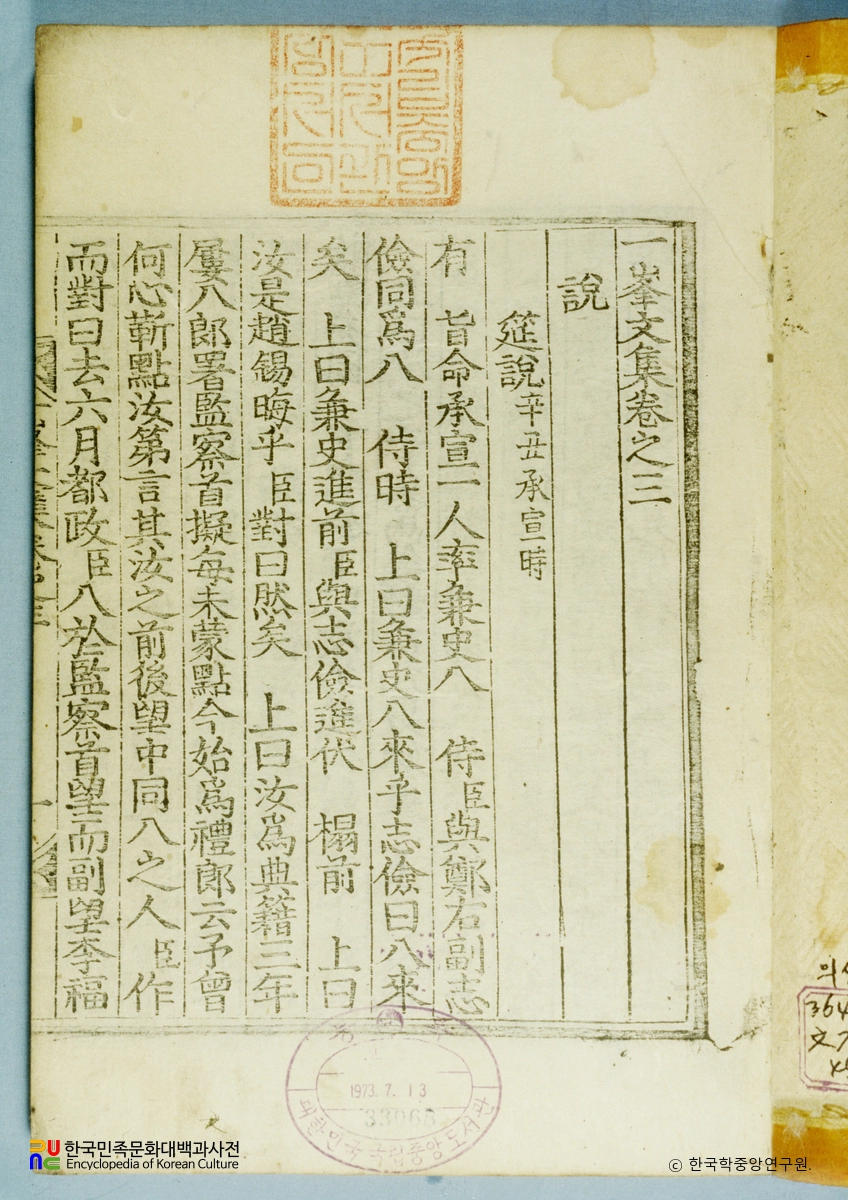 一峯文集卷之三
說
筵說 辛丑承宣時
有 旨命承宣二人率兼史入 侍臣與鄭右副志
儉同爲入 侍時 上曰兼史入來乎志儉曰入來
矣 上曰兼史進前臣與志儉進伏 榻前 上曰
汝是趙錫晦乎臣對曰然矣 上曰汝爲典籍三年
屢入郞署監察首擬每未蒙點今始爲禮郞云予曾
何心靳點汝第言其汝之前後望中同入之人臣作
而對曰去六月都政臣入於監察首望而副望李福
1973. 7. 13
33068
대한민국 국립중앙도서관
364
한국민족문화대백과사전
Encyclopedia of Korean Culture
© 한국학중앙연구원.